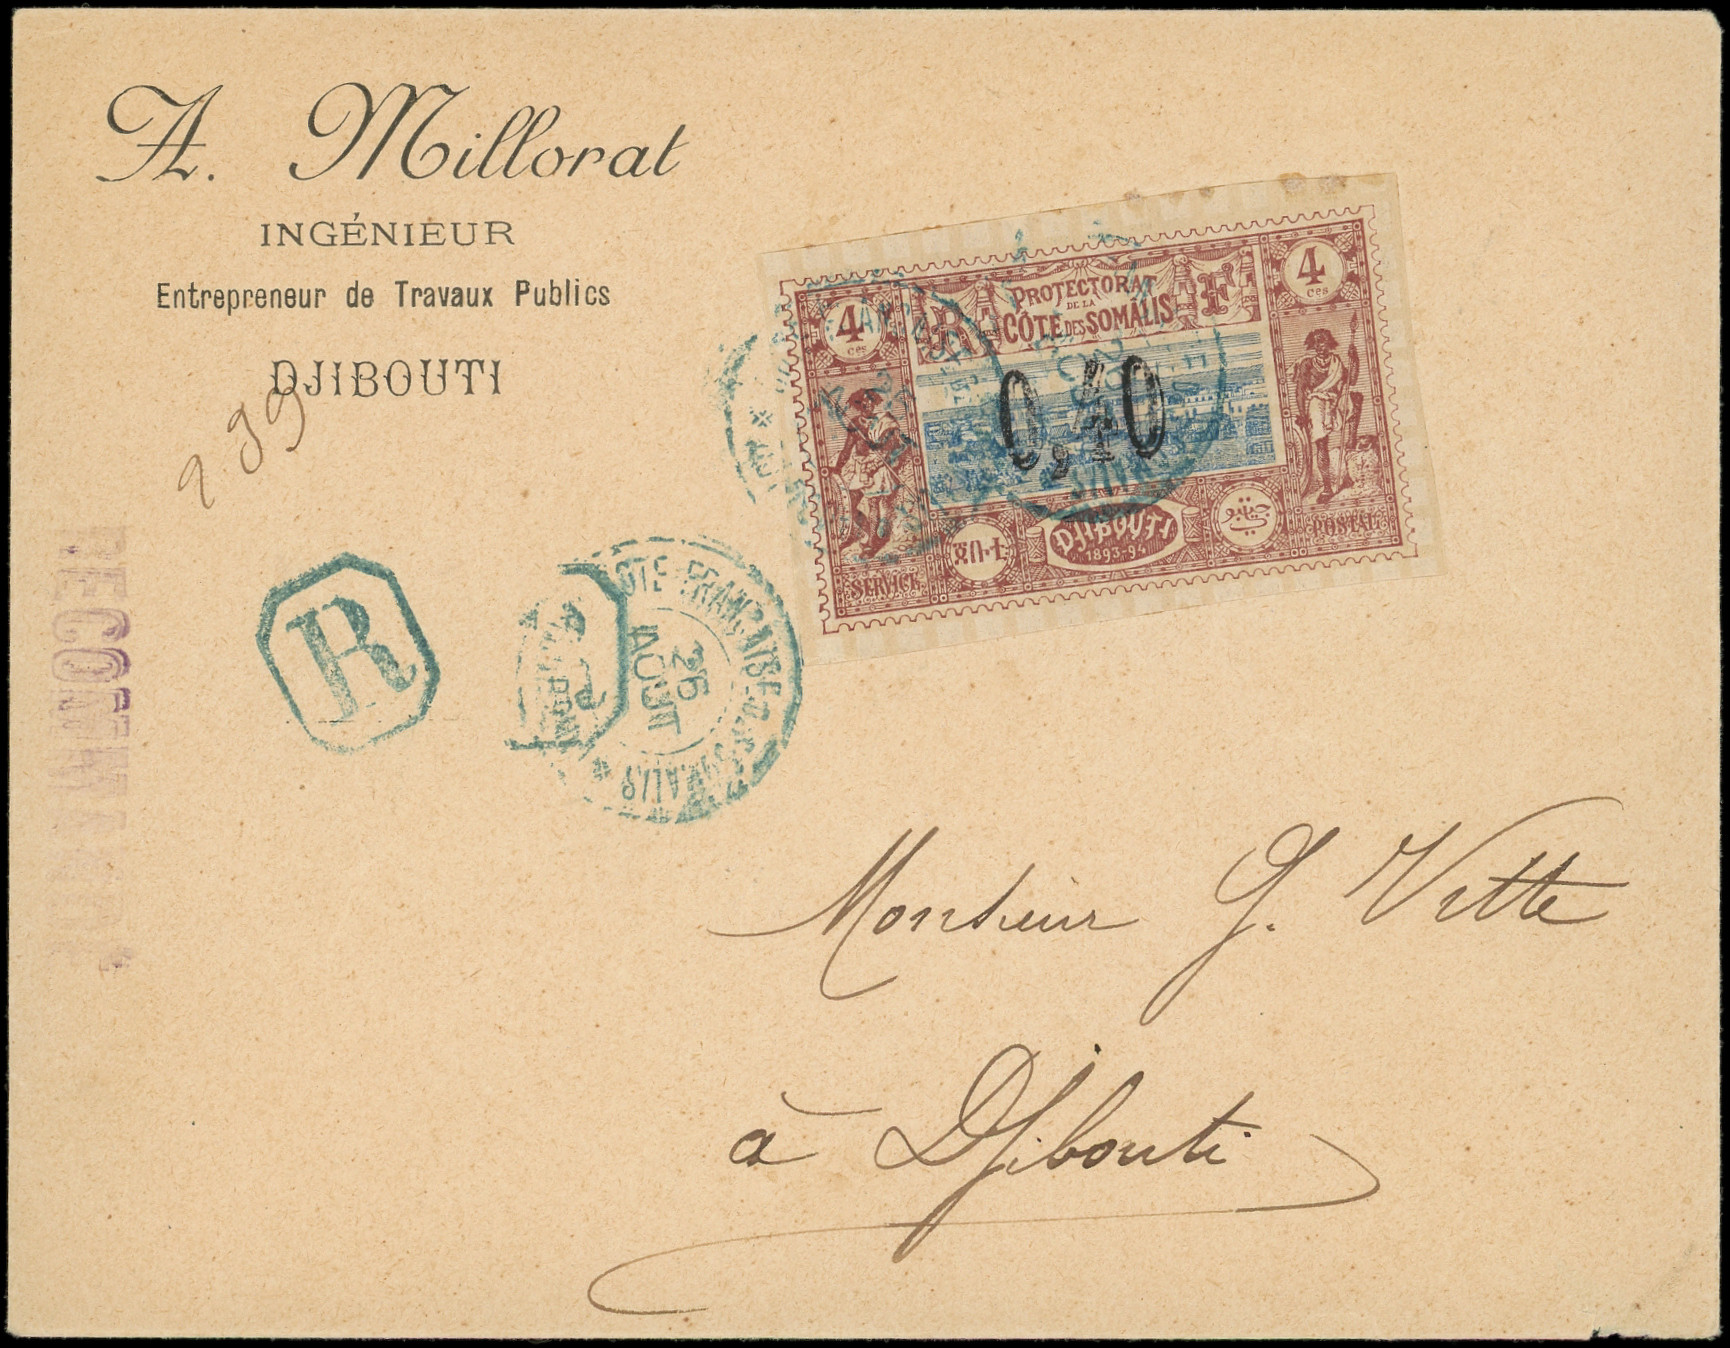 A. Millorat
INGÉNIEUR
Entrepreneur de Travaux Publics
DJIBOUTI
299
R
RECOMMANDÉ
26
AOUT
4
ces
R PROTECTORAT F
DE LA
CÔTE DES SOMALIS
4
ces
0,40
SERVICE
DJIBOUTI
1893-94
جيبوتي
POSTAL
Monsieur G. Vitte
à Djibouti